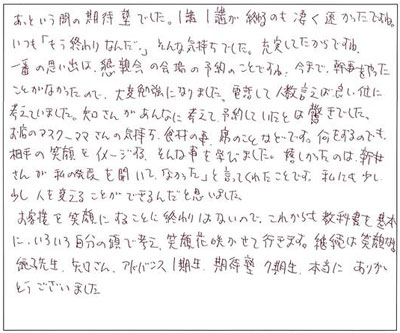 あっという間の期待塾でした。1講1講が終るのも凄く速かったですね。
いつも「もう終わりなんだ」そんな気持ちでした。充実してたからですね。
一番の思い出は、懇親会の会場の予約のことですね。今まで、幹事をやった
ことがなかったので、大変勉強になりました。電話して人数言えば良い位に
考えていました。矢口さんがあんなに考えて予約していたとは驚きでした。
お店のマスター、ママさんの気持ち、食材の事、席のことなどです。何をするのでも、
相手の笑顔をイメージする、そんな事を学びました。嬉しかったのは、幹社
さんが「私の発表を聞いて、なかった」と言ってくれたことです。私にも少し
少し人を変えることができるんだと思いました。
お客様を笑顔にすることに終わりはないので、これからも教科書を基本
に、いろいろ自分の頭で考え、笑顔花咲かせて行きます。継続は笑顔なり
先生、矢口さん、アドバンス1期生、期待塾7期生、本当に ありが
とうございました